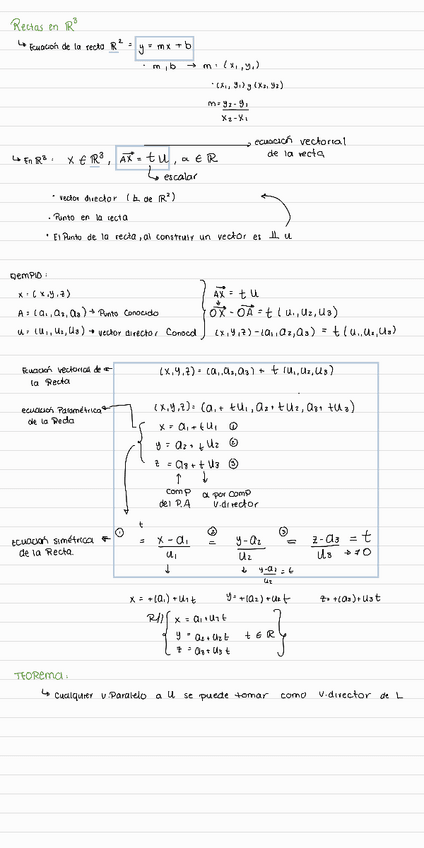 Rectas en ℝ³
↳ Ecuación de la recta ℝ² = y = mx + b
· m, b → m = (x₁, y₁)
· (x₁, y₁) y (x₂, y₂)
m = y₂ - y₁ / x₂ - x₁
↳ En ℝ³: X ∈ ℝ³, AX = t u, α ∈ ℝ → ecuación vectorial de la recta
↳ escalar
· vector director (b de ℝ²)
· Punto en la recta
· El Punto de la recta, al construir un vector es ⫫ u
Ejemplo:
x = (x, y, z)
A = (a₁, a₂, a₃) → Punto Conocido
u = (u₁, u₂, u₃) → vector director Conocd
AX = t u
OX - OA = t (u₁, u₂, u₃)
(x, y, z) - (a₁, a₂, a₃) = t (u₁, u₂, u₃)
Ecuación vectorial de la Recta ← (x, y, z) = (a₁, a₂, a₃) + t (u₁, u₂, u₃)
ecuación Paramétrica de la Recta ← (x, y, z) = (a₁ + tu₁, a₂ + tu₂, a₃ + tu₃)
x = a₁ + t u₁ ①
y = a₂ + t u₂ ②
z = a₃ + t u₃ ③
↑ ↓
comp del P.A
α por comp v.director
ecuación simétrica de la Recta ← ① t = x - a₁ / u₁ ② = y - a₂ / u₂ ③ = z - a₃ / u₃ = t
→ ≠ 0
↓ ↓ y - a₂ / u₂ = t
x = +(a₁) + u₁t y = +(a₂) + u₂t z = +(a₃) + u₃t
R// { x = a₁ + u₁ t
y = a₂ + u₂ t t ∈ ℝ }
z = a₃ + u₃ t
TEOREMA:
↳ Cualquier v.Paralelo a u se puede tomar como v.director de L